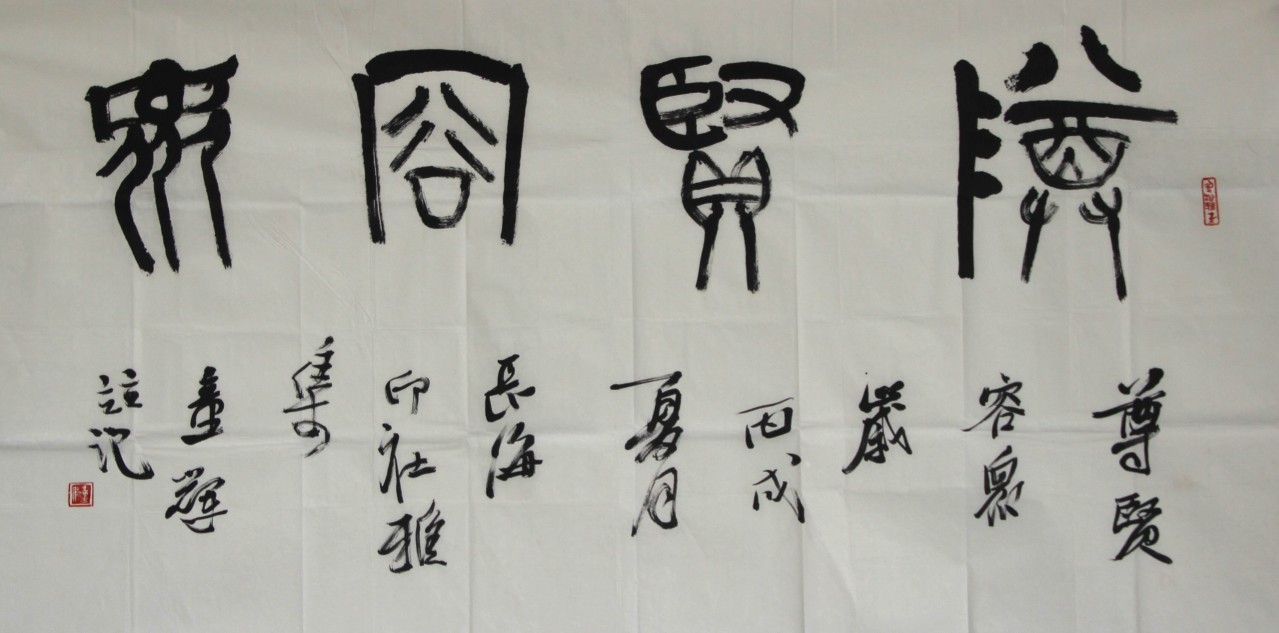 尊賢容眾
尊賢
容眾
歲
丙戌
夏月
長海
印社雅
集
童輝
註記